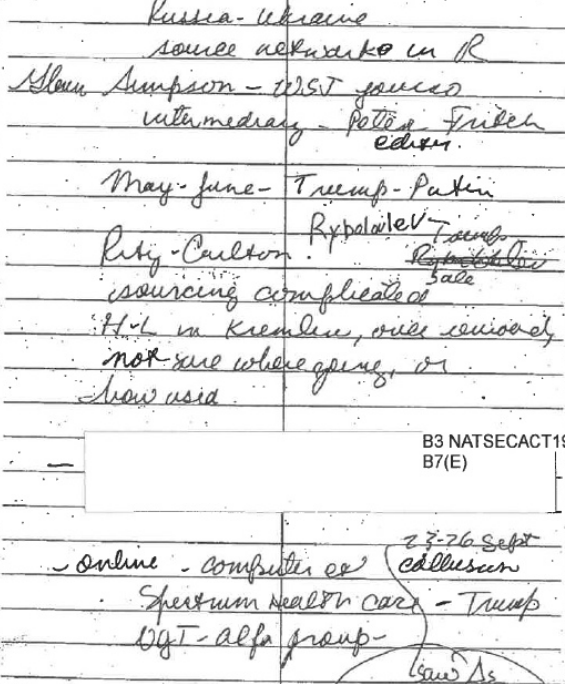 Russia - Ukraine
source networks in R
Glenn Simpson - WSJ
intermediary - Peter Fritch
editor.
May - June - Trump - Putin
Rypololev - Trump
Ritz - Carlton.
Sale
sourcing complicated
H-L in Kremlin, once removed,
not sure where going, or
how used
B3 NATSECACT19
B7(E)
23-26 Sept
- online - computer co collusion
Spectrum Health Care - Trump
Alfa group -